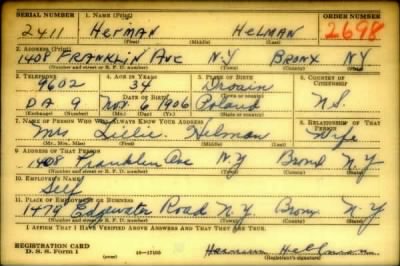 SERIAL NUMBER 1. NAME (Print) ORDER NUMBER
2411 Herman Helman 2698
(First) (Middle) (Last)
2. ADDRESS (Print)
1408 FRANKLIN AVE N.Y BRONX NY
(Number and street or R. F. D. number) (Town) (County) (State)
3. TELEPHONE 4. AGE IN YEARS 5. PLACE OF BIRTH 6. COUNTRY OF CITIZENSHIP
9602 34
DATE OF BIRTH (Town or county)
DA 9 Nov. 1906 Poland U.S.
(Exchange) (Number) (Mo.) (Day) (Yr.) (State or country)
7. NAME OF PERSON WHO WILL ALWAYS KNOW YOUR ADDRESS 8. RELATIONSHIP OF THAT PERSON
Mrs Lillie Helman Wife
(Mr., Mrs., Miss) (First) (Middle) (Last)
9. ADDRESS OF THAT PERSON
1408 Franklin Ave N.Y Bronx N.Y
(Number and street or R. F. D. number) (Town) (County) (State)
10. EMPLOYER'S NAME
Self
11. PLACE OF EMPLOYMENT OR BUSINESS
1479 Edgewater Road N.Y. Bronx N.Y
(Number and street or R. F. D. number) (Town) (County) (State)
I AFFIRM THAT I HAVE VERIFIED ABOVE ANSWERS AND THAT THEY ARE TRUE.
REGISTRATION CARD
D. S. S. Form 1 Herman Helman
(Registrant's signature)